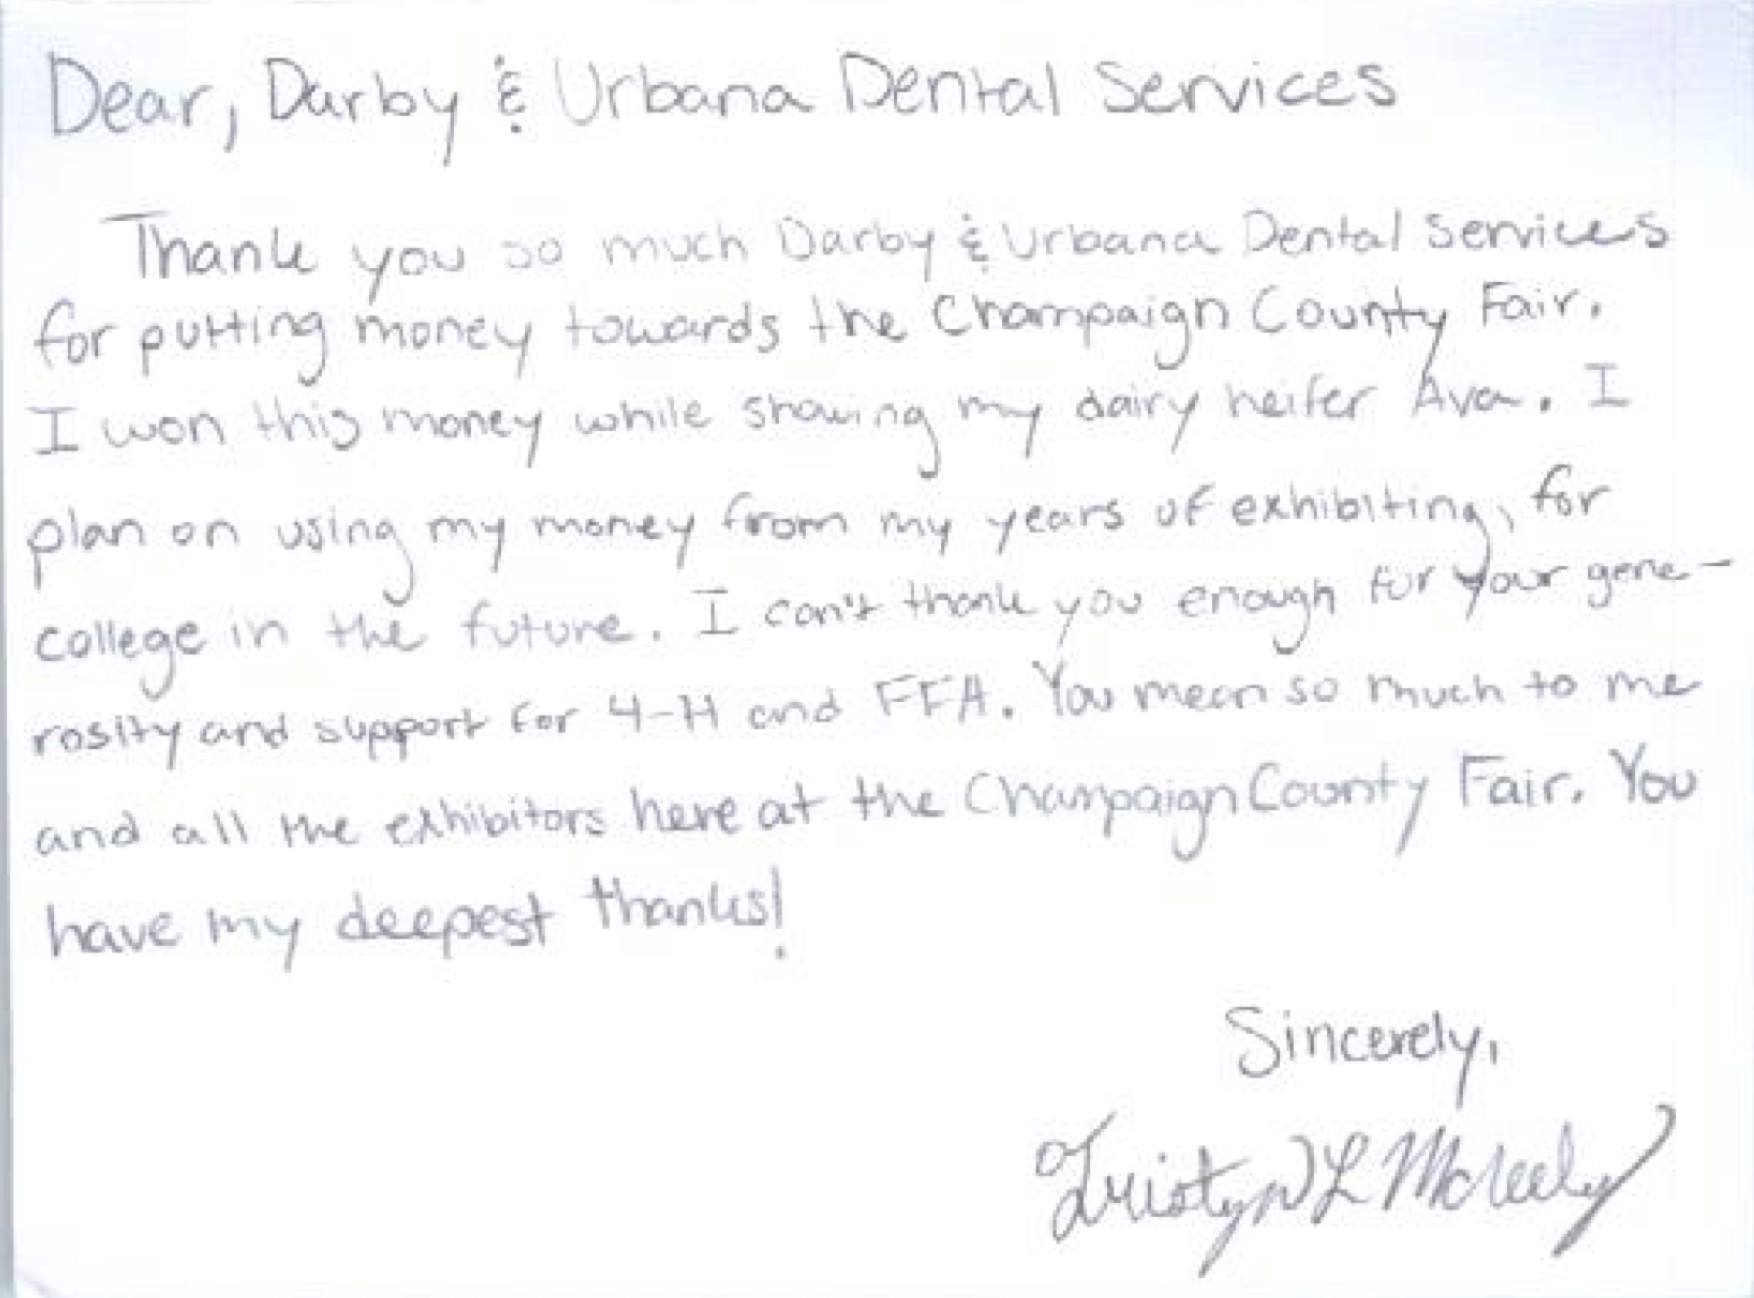 Dear, Darby & Urbana Dental Services
Thank you so much Darby & Urbana Dental Services
for putting money towards the Champaign County Fair.
I won this money while showing my dairy heifer Ava. I
plan on using my money from my years of exhibiting, for
college in the future. I can't thank you enough for your gene-
rosity and support for 4-H and FFA. You mean so much to me
and all the exhibitors here at the Champaign County Fair. You
have my deepest thanks!
Sincerely,
L